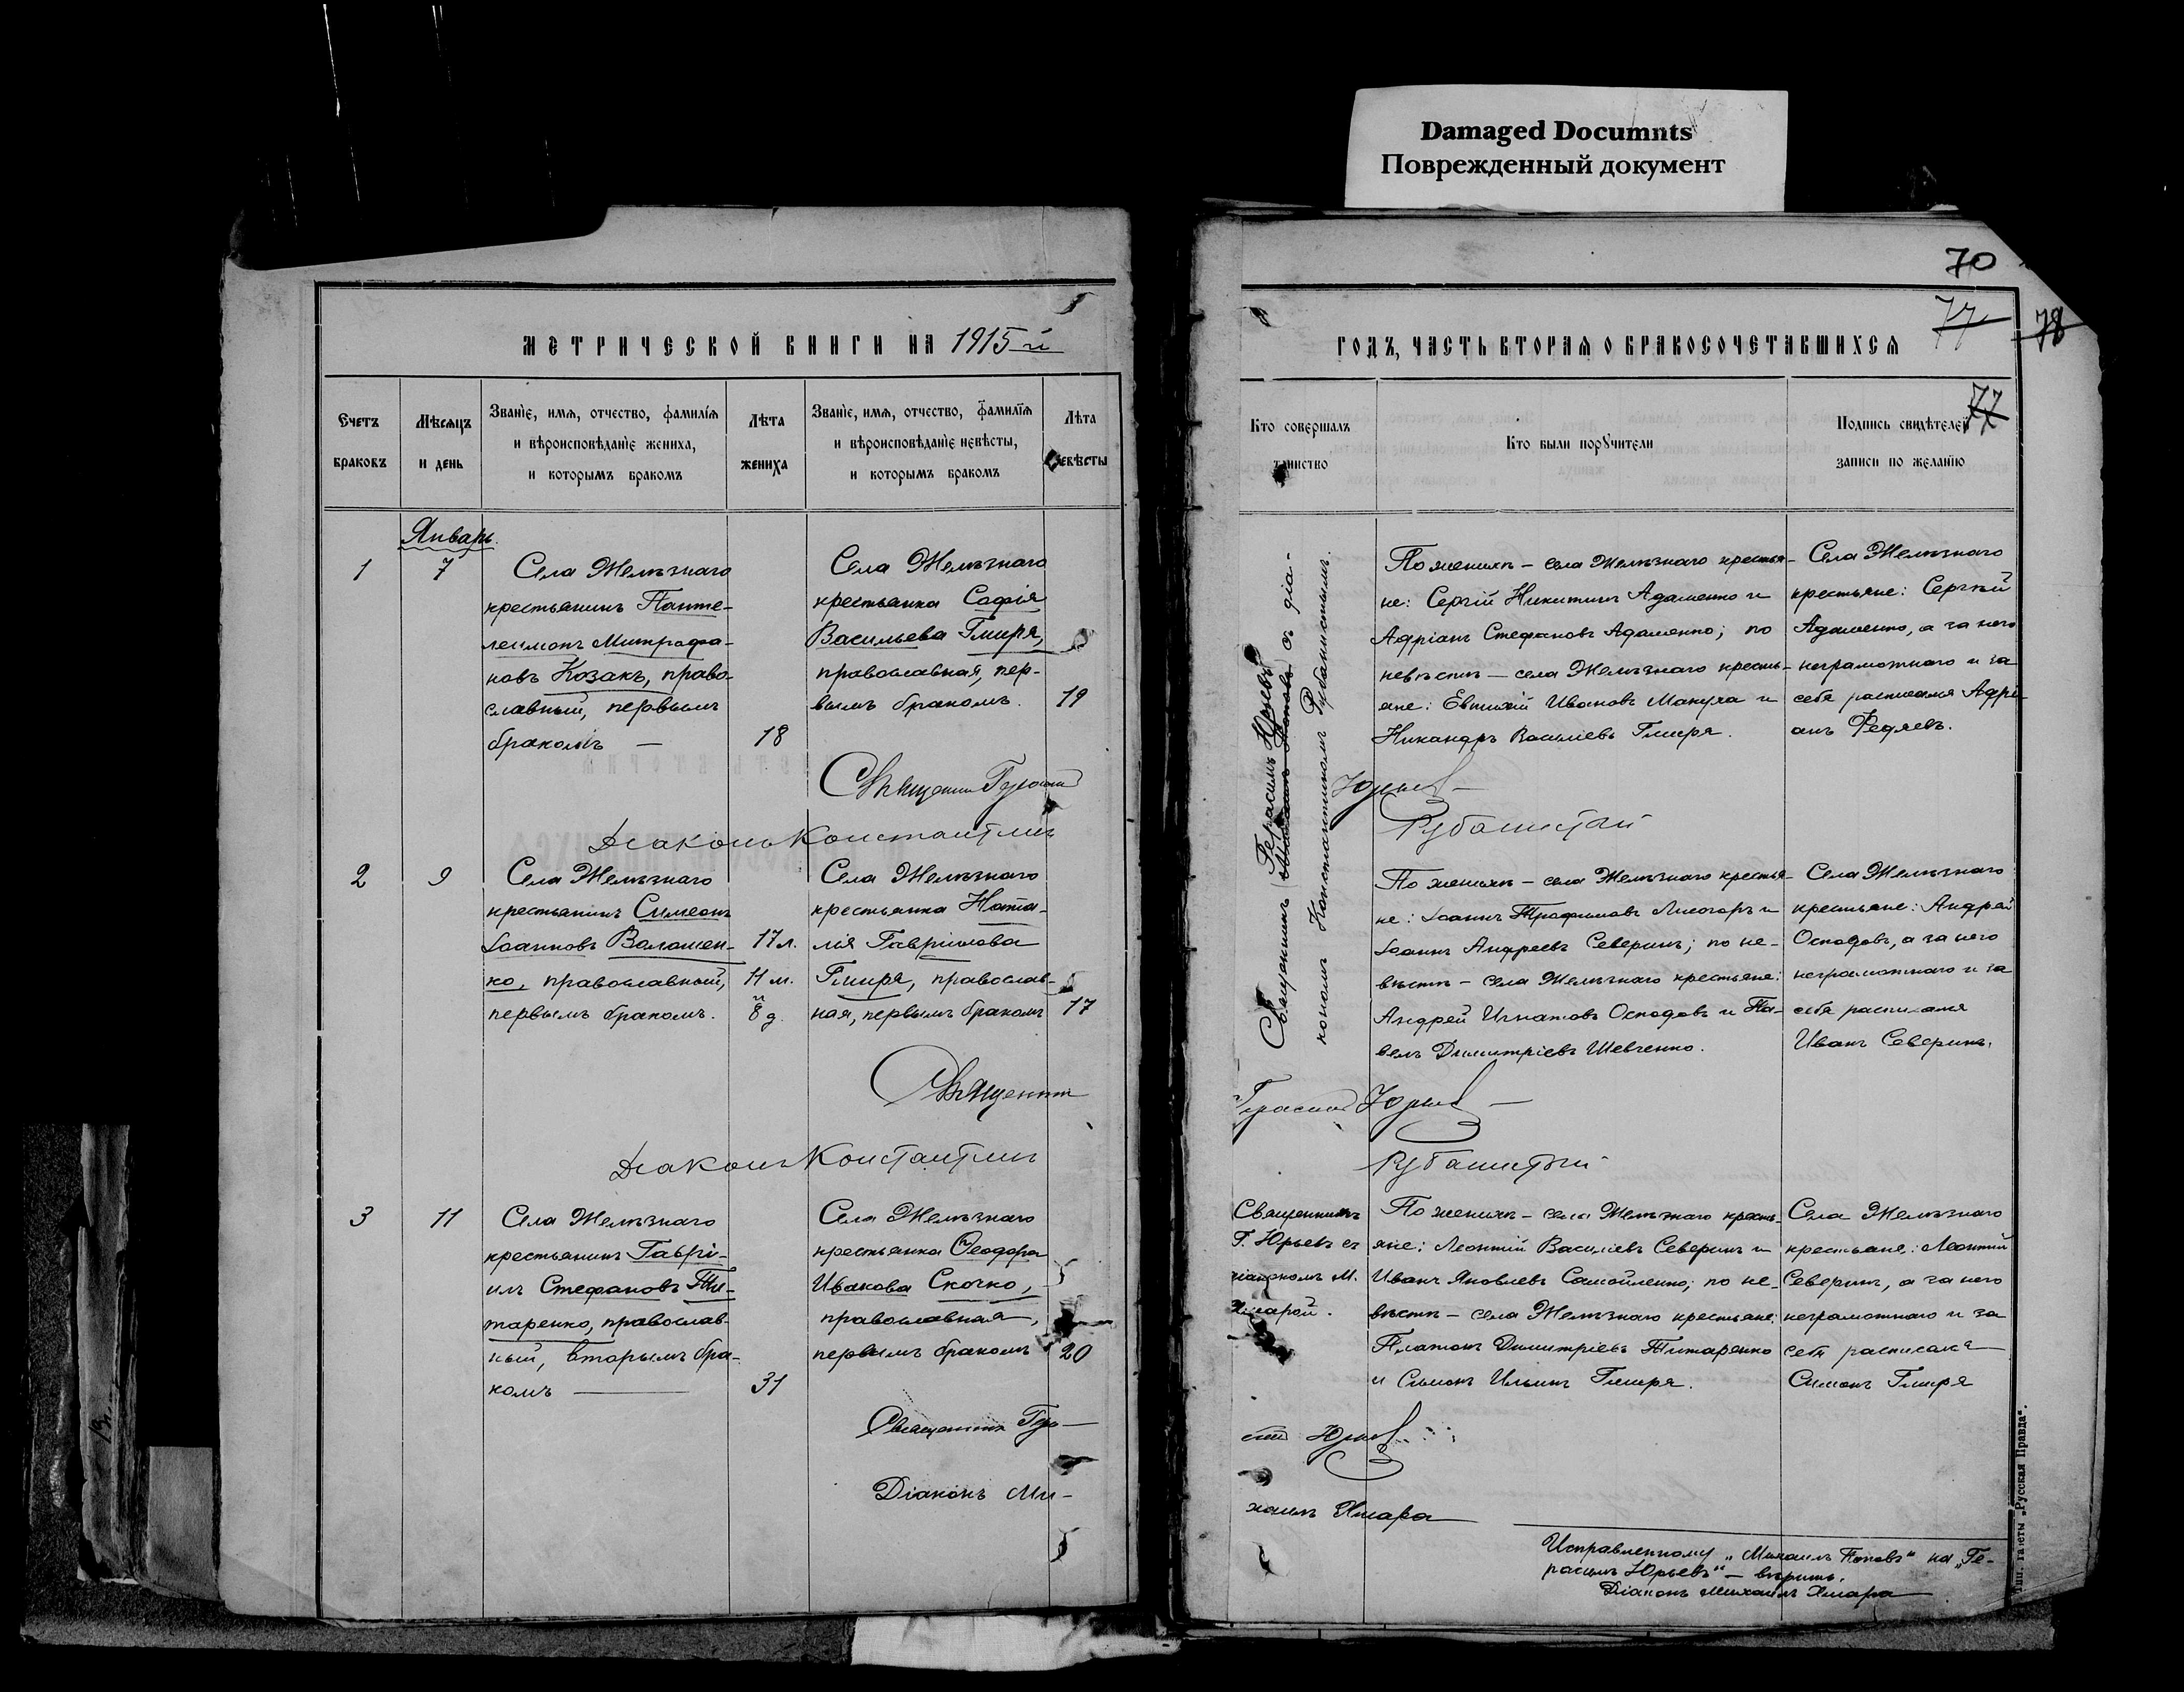 Damaged Documnts
Поврежденный документ
70
77
78
77
МЕТРИЧЕСКОЙ КНИГИ НА 1915-й
ГОДЪ, ЧАСТЬ ВТОРАЯ О БРАКОСОЧЕТАВШИХСЯ
Счетъ
браковъ
Мѣсяцъ
и день
Званіе, имя, отчество, фамилія
и вѣроисповѣданіе жениха,
и которымъ бракомъ
Лѣта
жениха
Званіе, имя, отчество, фамилія
и вѣроисповѣданіе невѣсты,
и которымъ бракомъ
Лѣта
невѣсты
Кто совершалъ
таинство
Кто были поручители
Подпись свидѣтелей
записи по желанію
Январь.
1
7
Села Желѣзнаго
крестьянинъ Панте-
леимонъ Митрофа-
новъ Козакъ, право-
славный, первымъ
бракомъ —
18
Села Желѣзнаго
крестьянка Софія
Васильева Гмиря,
православная, пер-
вымъ бракомъ.
19
Священникъ Герасимъ Юрьевъ съ діа-
Михаилъ Поповъ
кономъ Константиномъ Рубанистымъ.
По женихѣ — села Желѣзнаго крестья-
не: Сергій Никитинъ Адаменко и
Адріанъ Стефановъ Адаменко; по
невѣстѣ — села Желѣзнаго кресть-
яне: Евтихій Ивановъ Макуха и
Никандръ Васильевъ Гмиря.
Села Желѣзнаго
крестьяне: Сергѣй
Адаменко, а за него
неграмотнаго и за
себя расписался Адрі-
анъ Федяевъ.
Священникъ Герасимъ
Юрьевъ
Діаконъ Константинъ
Рубанистый
2
9
Села Желѣзнаго
крестьянинъ Симеонъ
Іоанновъ Валошен-
ко, православный,
первымъ бракомъ.
17 л.
11 м.
и
8 д.
Села Желѣзнаго
крестьянка Ната-
лія Гавріилова
Гмиря, православ-
ная, первымъ бракомъ
17
По женихѣ — села Желѣзнаго крестья-
не: Іоаннъ Трофимовъ Лисогоръ и
Іоаннъ Андреевъ Северинъ; по не-
вѣстѣ — села Желѣзнаго крестьяне:
Андрей Игнатовъ Осподовъ и Па-
велъ Димитріевъ Шевченко.
Села Желѣзнаго
крестьяне: Андрей
Осподовъ, а за него
неграмотнаго и за
себя расписался
Иванъ Северинъ.
Священникъ
Герасимъ Юрьевъ
Діаконъ Константинъ
Рубанистый
3
11
Села Желѣзнаго
крестьянинъ Гаврі-
илъ Стефановъ Ти-
таренко, православ-
ный, вторымъ бра-
комъ
31
Села Желѣзнаго
крестьянка Ѳеодора
Иванова Скочко,
православная,
первымъ бракомъ
20
Священникъ
Г. Юрьевъ съ
діакономъ М.
Хмарой.
По женихѣ — села Желѣзнаго кресть-
яне: Леонтій Васильевъ Северинъ и
Иванъ Яковлевъ Самойленко; по не-
вѣстѣ — села Желѣзнаго крестьяне:
Платонъ Димитріевъ Титаренко
и Симонъ Ильинъ Гмиря.
Села Желѣзнаго
крестьяне: Леонтій
Северинъ, а за него
неграмотнаго и за
себя расписался
Симонъ Гмиря
Священникъ Гера-
симъ Юрьевъ
Діаконъ Ми-
хаилъ Хмара
Исправленному „Михаилъ Поповъ“ на „Ге-
расимъ Юрьевъ“ — вѣрить.
Діаконъ Михаилъ Хмара
Тип. газеты „Русская Правда“.